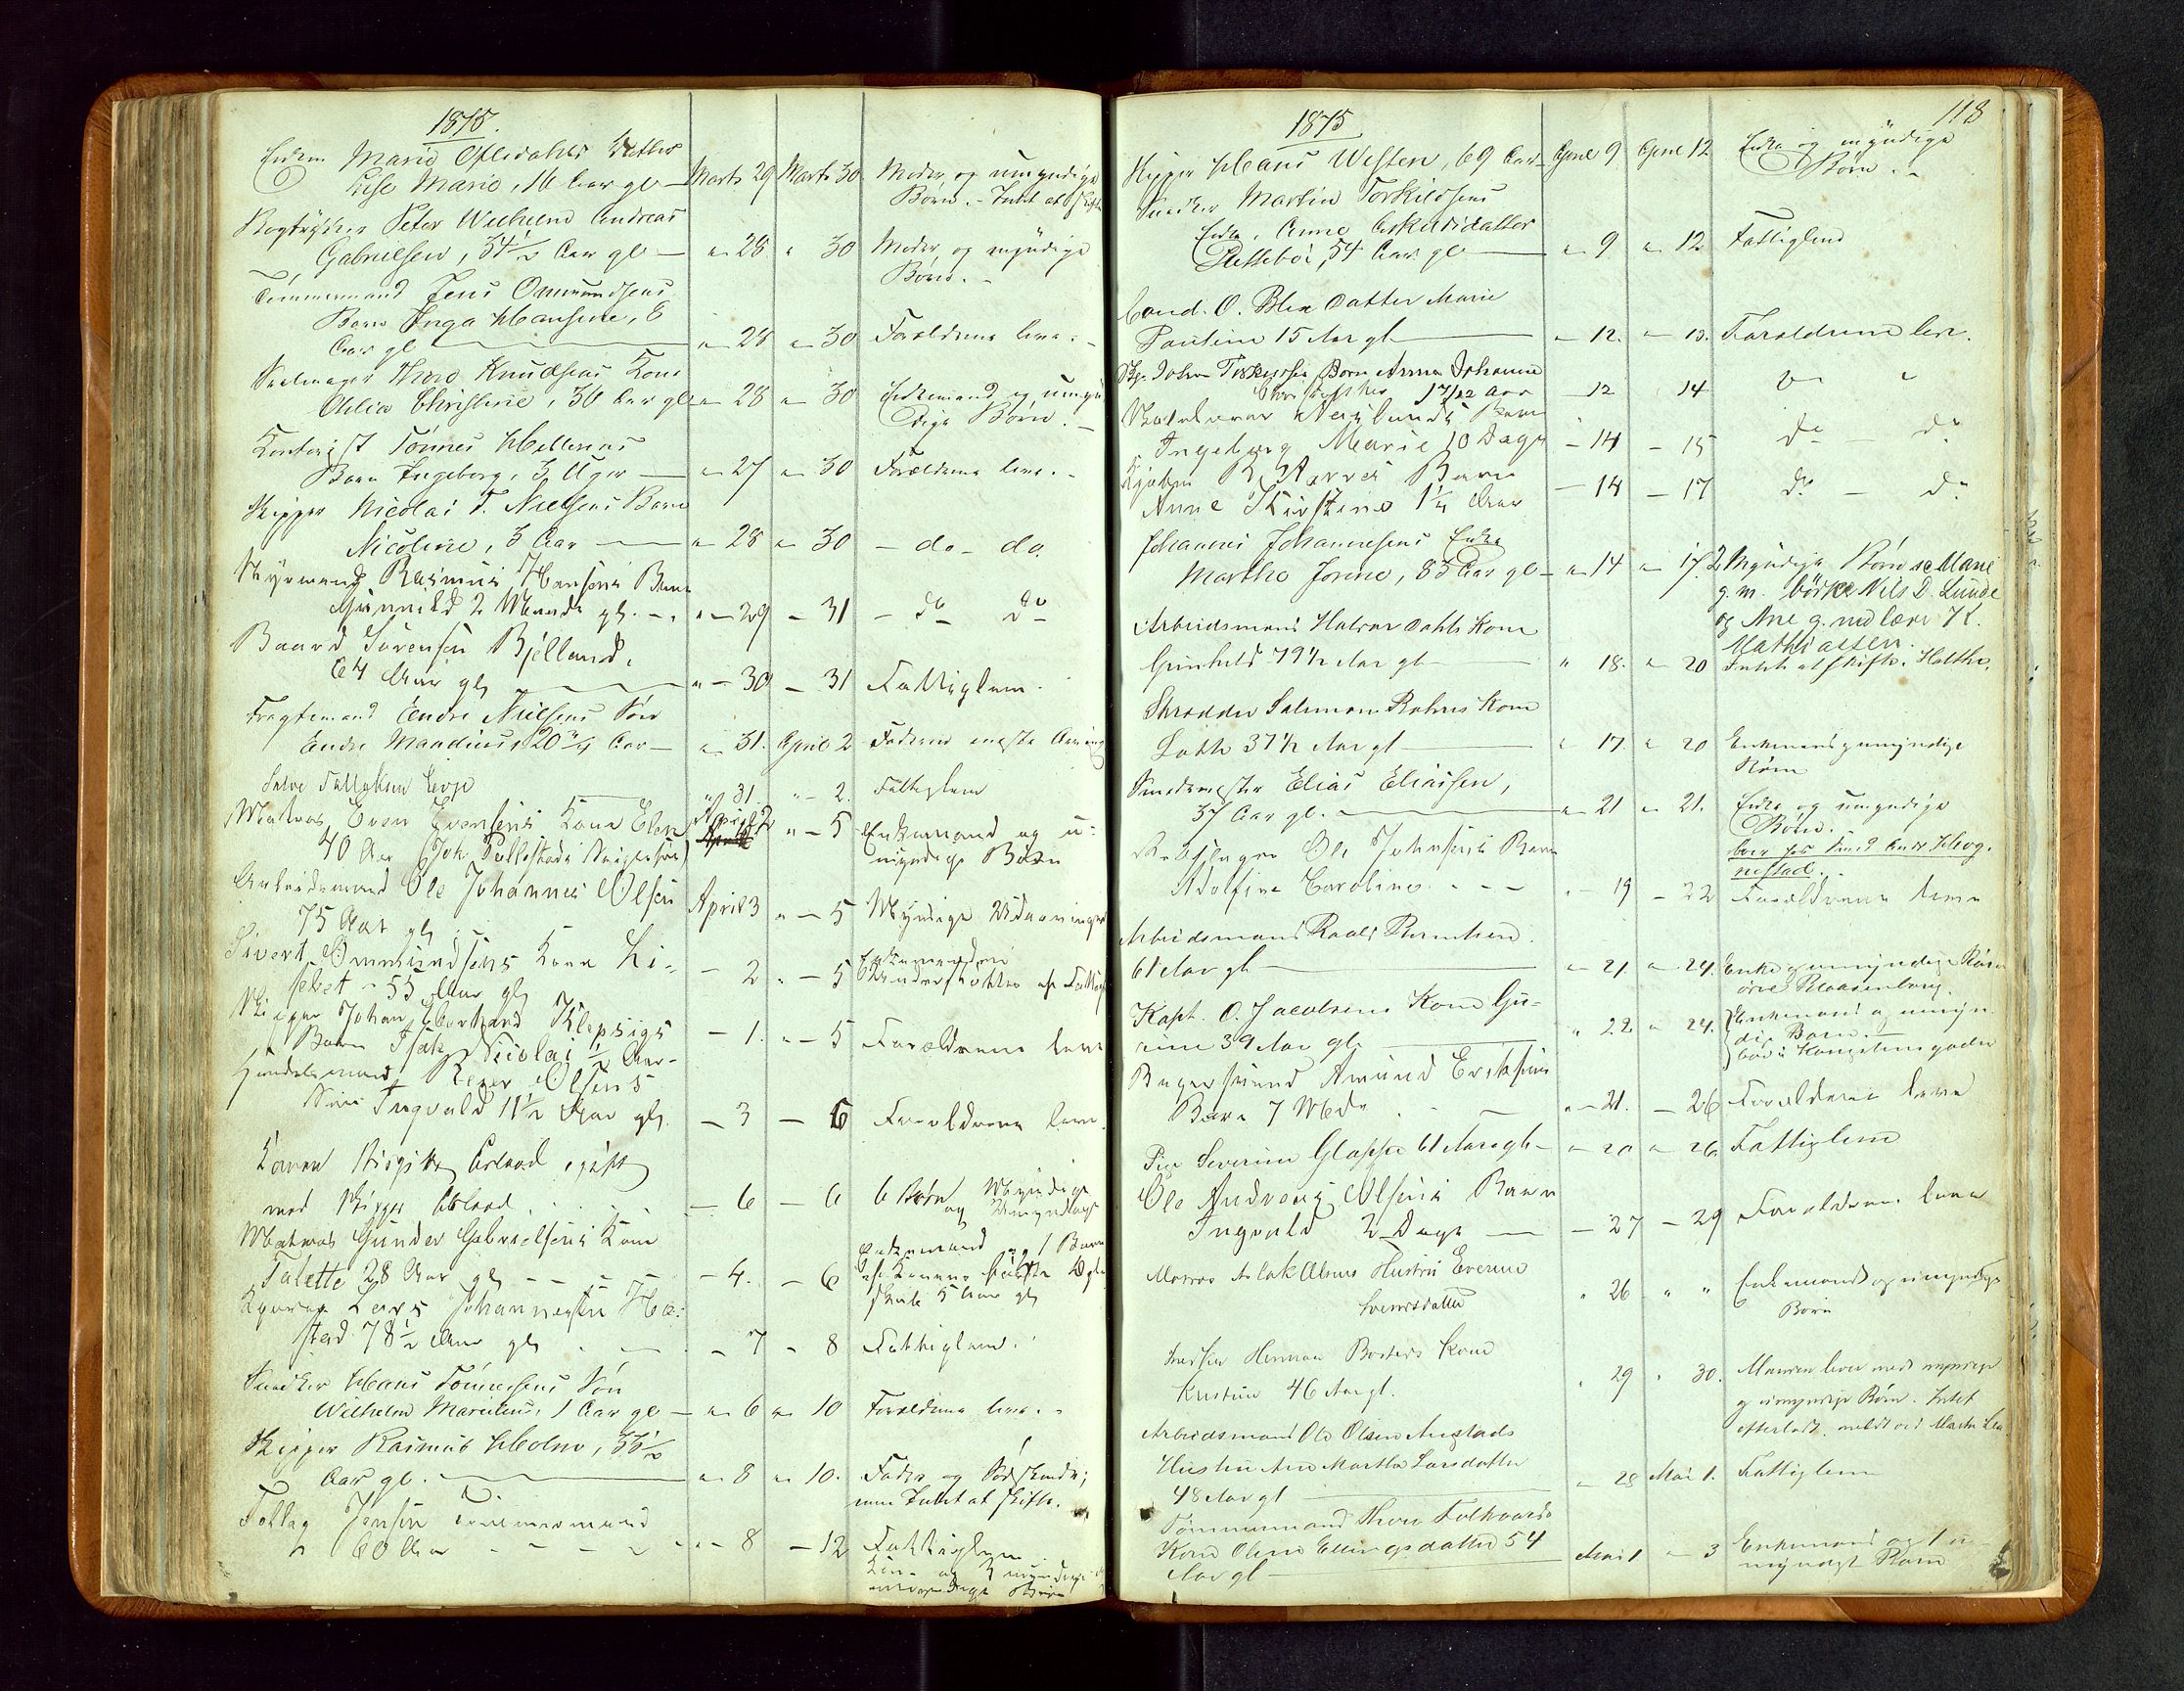 1875.
Enken Marie Oftedahls Datter
Lise Marie, 16 Aar gl — Marts 29 Marts 30 Moder og umyndige
Børn. - Intet at skifte
Bogtrykker Peter Wilhelm Andreas
Gabrielsen, 34 1/2 Aar gl — " 28 " 30 Moder og myndige
Børn. -
Tømmermand Jens Ommundsens
Barn Inga Hansine, 8
Aar gl — " 28 " 30 Forældrene leve. -
Seilmager Thore Knudsens Kone
Olelia Christine, 36 Aar gl — " 28 " 30 Enkemand og umyn
dige Børn. -
Kontorist Tönnes Mellesens
Barn Ingeborg, 3 Uger — " 27 " 30 Forældrene leve. -
Skipper Nicolai T. Nielsens Barn
Nicoline, 3 Aar — " 28 " 30 — do — do.
Styrmand Rasmus Hansens Barn
Gunnild 2 Maaned gl. — " 29 — 31 — do — do —
Baard Sörensen Bjelland,
64 Aar gl — " 30 — 31 Fattiglem.
Fragtemand Endre Nielsens Søn
Endre Mandius 20 3/4 Aar — " 31. April 2 Faderen eneste Arving
Salve Tallaksen Eeg — " 31. " 2. Fattiglem
Matros Even Evensens Kone Elen
40 Aar (Joh. Tallestads Svigersøn) April 2 " — 5 Enkemand og u-
myndige Børn
Arbeidsmand Ole Johannes Olsen
75 Aar gl — April 3 " — 5 Myndige Udarvinger
Sivert Ommundsens Kone Li-
sebet — 55 Aar gl — 2. " — 5 Enkemanden
Understøttes af Fattigv
Skipper Johan Eberhard Klepsigs
Barn Isak Nicolai 1/2 Aar — — 1. " — 5 Forældrene leve
Handelsmand Peder Olsens
Søn Ingvald 11 1/2 Aar gl. — 3 — 6 Forældrene leve.
Karen Birgitte Asland, gift
med Skipper Asland . . . — 6 — 6 6 Børn Myndige
og Umyndige
Matros Gunder Gabrielsens Kone
Talette 28 Aar gl — — — 4. — 6 Enkemand og 1 Barn
af Konens første Ægte
skab 5 Aar gl
Lars Johannesen Ha-
stad 78 1/2 Aar gl . — . — 7 — 8 Fattiglem.
Snedker Hans Tönnesens Søn
Wilhelm Martinus, 1 Aar gl — " 6 " 10 Forældrene leve. -
Skipper Rasmus Holm, 36 1/2
Aar gl. — " 8 " 10. Fader og Sødskende;
men Intet at skifte.
Tollag Jensen Tømmermand
60 Aar — — — " 8 — 12 Fattiglem
Kone og umyndige
Børn
1875
118
Skipper Hans Westen, 69 Aar — April 9 April 12 Enke og myndige
Børn. -
Snedker Martin Torkildsens
Enke, Anne Askildsdatter
Slettebø, 54 Aar gl — " 9 " 12 Fattiglem
Cand. O. Blix Datter Marie
Pauline 15 Aar gl — " 12. " 13. Forældrene leve.
Skp. Johan Torkelsen Barn Anna Johanne
1 7/12 Aar — 12 14 " "
Barn
Ingeborg Marie 10 Dage — 14 — 15 do — do
Barn
Anne Kirstine 1 1/4 Aar — 14 — 17 do — do
Johannes Johannesens Enke
Marthe Jorine, 83 Aar gl — " 14 " 17. 2 Myndige Børn sc Marie
g. m. bødker Nils D. Lunde
og Ane g. med lærer K.
Mathiassen.
Arbeidsmand Halvor Dahls Kone
Gunhild 79 1/2 Aar gl — " 18. " 20 Intet at skifte.
Skrædder Salomon Rohnes Kone
Lotte 37 1/2 Aar gl — " 17. " 20 Enkemand og umyndige
Børn
Smedmester Elias Eliassen,
37 Aar gl. — " 21 " 21. Enke og umyndige
Børn.
boer hos Smed And. Høg-
nestad. -
Rebslager Ole Johnsens Barn
Adolfine Caroline . — — " 19 — 22 Forældrene leve
Arbeidsmand Roald
61 Aar gl — " 21. " 24. Enke og umyndige Børn
øvre Blaasenborg.
Kapt. O. Jacobsens Kone Gu-
rine 39 Aar gl. — " 22 " 24. Enkemand og umyn-
dige Børn. —
bor i Kongsteensgaden
Bagersvend Amund Eriksens
Barn 7 Mdr . — — " 21. — 26 Forældrene leve
Pige Severine Gloppe 61 Aar gl — " 20 " 26 Fattiglem
Ole Andreas Olsens Barn
Ingvald 2 Dage — — 27 — 29 Forældrene leve
Matros Aslak Olsens Hustru Everine
Svendsdatter " 26 " " Enkemand og umyndige
Børn
Herman Bosteds Kone
Kirstine 46 Aar gl. " 29 " 30. Manden lever med myndige
og umyndige Børn. Intet
efterladt. meldt ved
Arbeidsmand Ole Olsen Austads
Hustru Ane Martha Larsdatter
48 Aar gl — " 28 Mai 1. Fattiglem
Tømmermand Thore Folkvards
Kone Olene Ellingsdatter 54
Aar gl — Mai 1 " 3 Enkemand og 1 u-
myndigt Barn